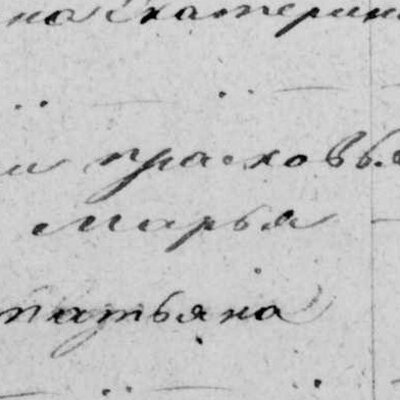 на Екатерин
и прасковья
Марья
татьяна